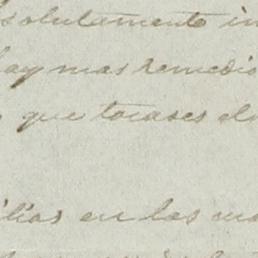 absolutamente in
hay mas remedio
que tocases el
ilias en las ma